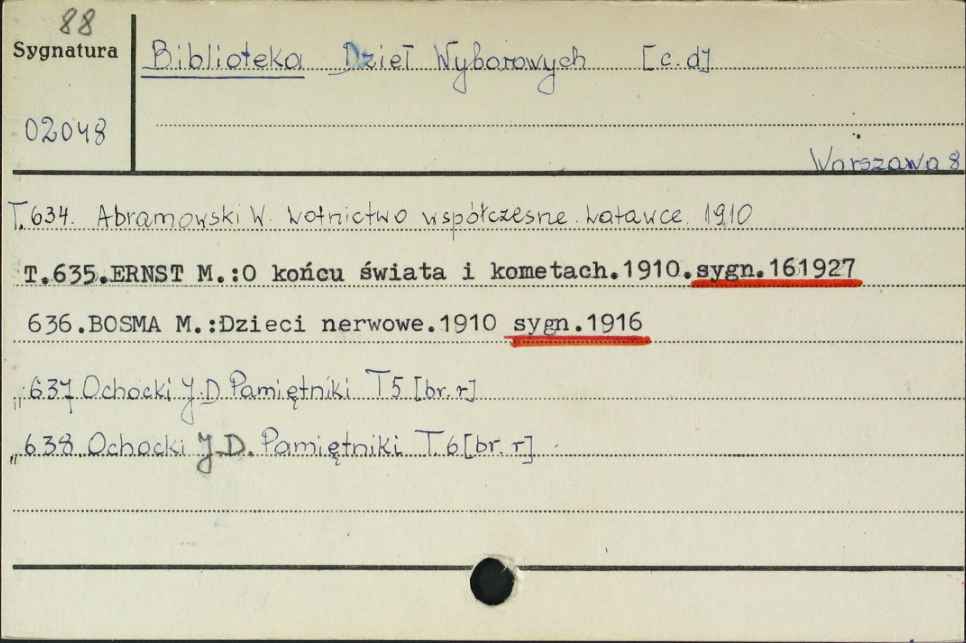 88
Sygnatura
Biblioteka Dzieł Wyborowych [c.d]
02048
Warszawa 8
T.634. Abramowski W. Lotnictwo współczesne. Latawce. 1910
T.635.ERNST M.:O końcu świata i kometach.1910.sygn.161927
636.BOSMA M.:Dzieci nerwowe.1910 sygn.1916
„ 637 Ochocki J.D. Pamiętniki T5 [br. r]
„ 638 Ochocki J.D. Pamiętniki T.6 [br. r]